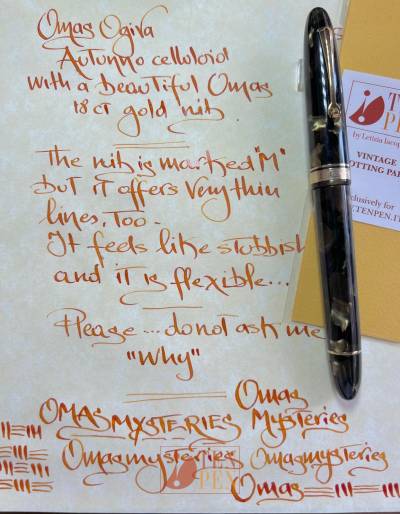 Omas Ogiva
Autunno celluloid
with a beautiful Omas
18 ct gold nib
The nib is marked "M"
but it offers very thin
lines, too.
It feels like stubbish
and it is flexible...
Please... do not ask me
"Why"
Omas
OMASMYSTERIES Mysteries
Omasmysteries Omasmysteries
Omas
TEN
PEN
by Letizia Iacop
VINTAGE
OTTING PA
clusively for
ETENPEN.IT